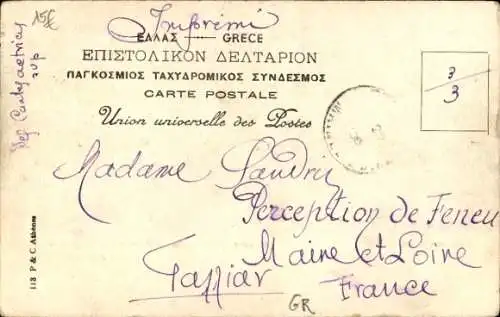 15€
Imprimé
ΕΛΛΑΣ GRECE
ΕΠΙΣΤΟΛΙΚΟΝ ΔΕΛΤΑΡΙΟΝ
ΠΑΓΚΟΣΜΙΟΣ ΤΑΧΥΔΡΟΜΙΚΟΣ ΣΥΝΔΕΣΜΟΣ
CARTE POSTALE
Union universelle des Postes
3
3
Madame Landry
Perception de Feneu
Maine et Loire
Γαλλίαν
France
GR
113 P & C Athènes